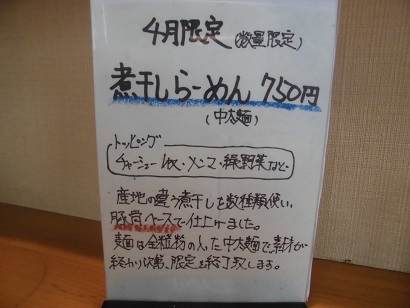 4月限定(数量限定)
煮干しらーめん 750円
(中太麺)
トッピング
チャーシュー1枚・メンマ・緑野菜など
産地の違う煮干しを数種類使い、
豚骨ベースで仕上げました。
麺は全粒粉の入った中太麺で素材が
終わり次第、限定を終了致します。